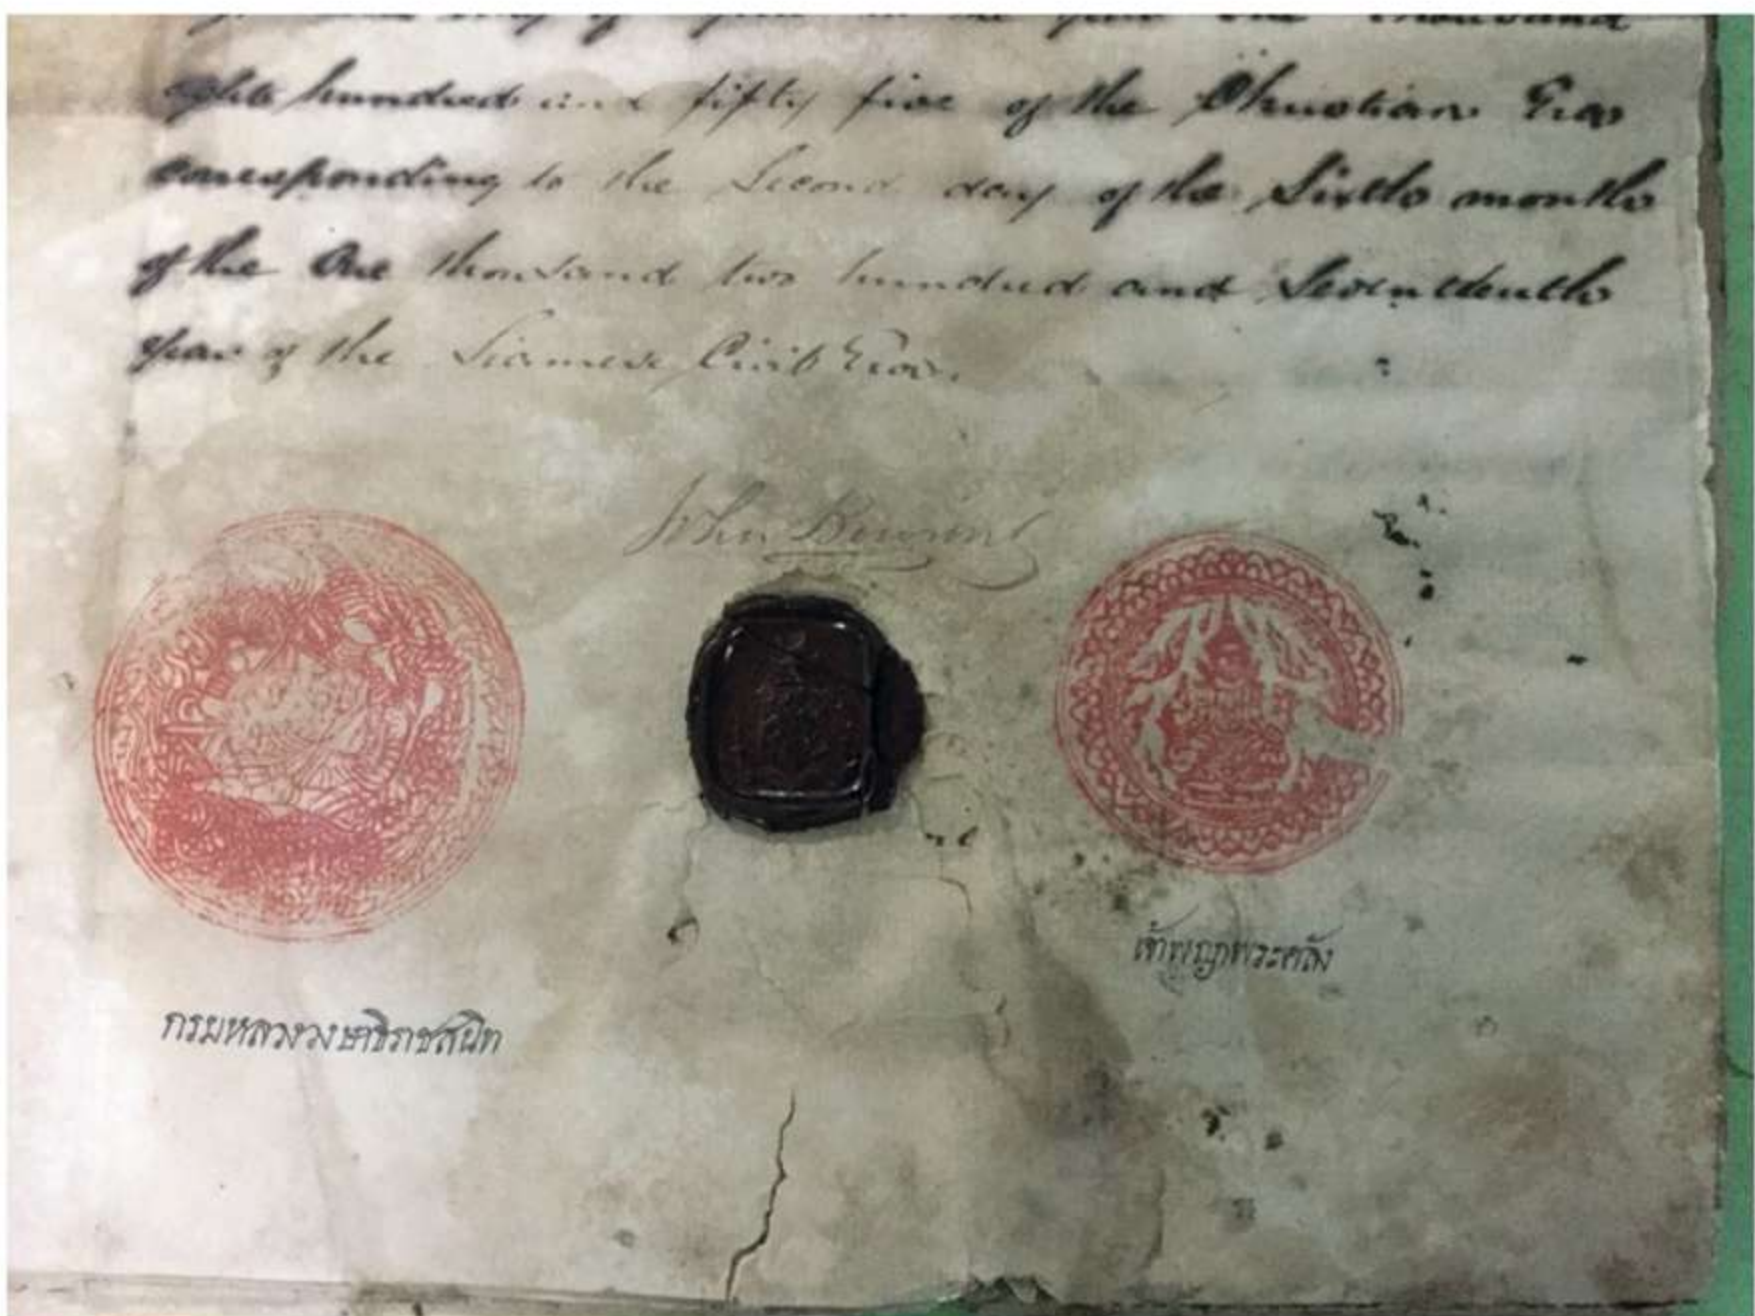 day of in the year One thousand
eight hundred and fifty five of the Christian Era
corresponding to the Second day of the Sixth month
of the One thousand two hundred and Seventeenth
year of the Siamese Civil Era.
John Bowring
เจ้าพญาพระคลัง
กรมหลวงวงษาธิราชสนิท